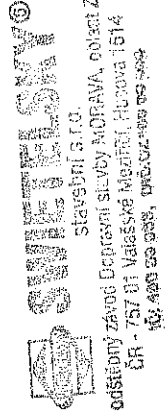 SWIETELSKY®
stavební s.r.o.
odštěpný závod Dopravní stavby MORAVA, oblast Z
ČR - 757 01 Valašské Meziříčí, Hunova 1514